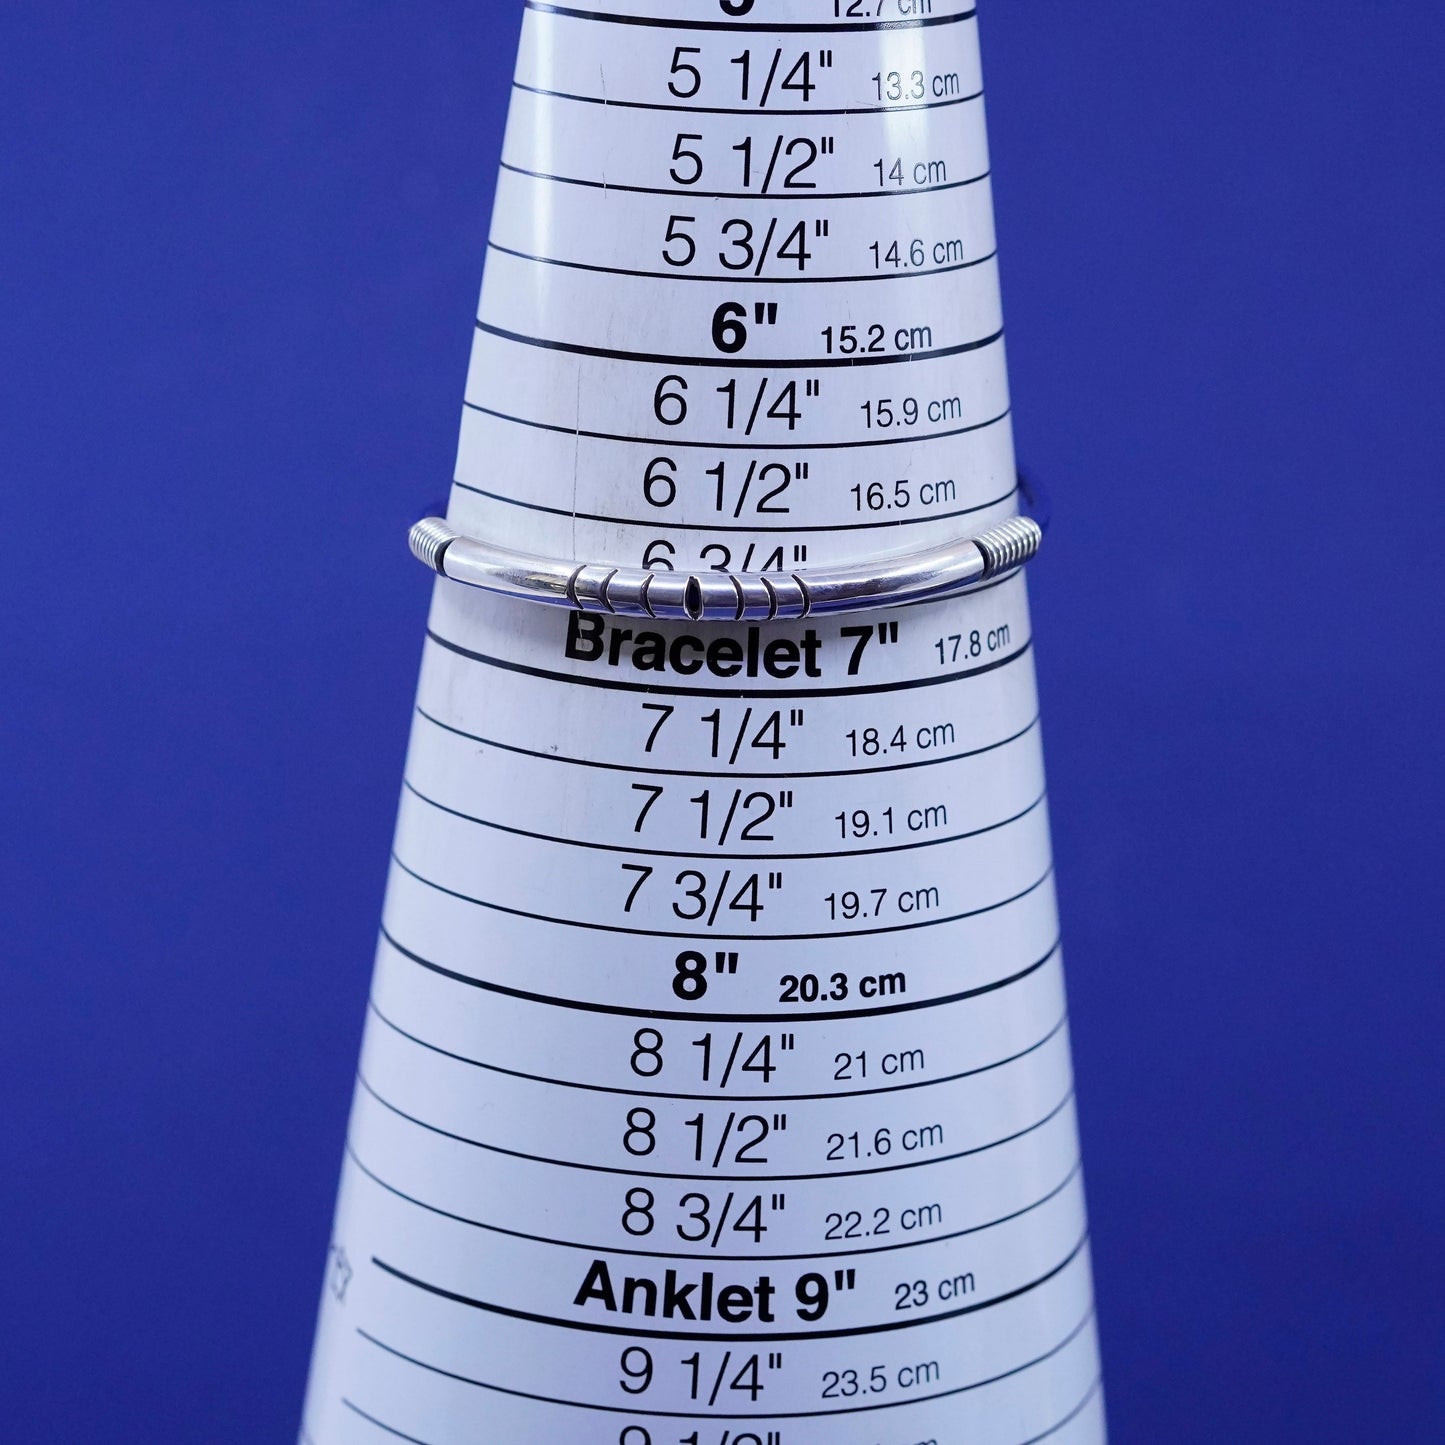 12.7 cm
5 1/4" 13.3 cm
5 1/2" 14 cm
5 3/4" 14.6 cm
6" 15.2 cm
6 1/4" 15.9 cm
6 1/2" 16.5 cm
6 3/4"
Bracelet 7" 17.8 cm
7 1/4" 18.4 cm
7 1/2" 19.1 cm
7 3/4" 19.7 cm
8" 20.3 cm
8 1/4" 21 cm
8 1/2" 21.6 cm
8 3/4" 22.2 cm
Anklet 9" 23 cm
9 1/4" 23.5 cm
9 1/2"